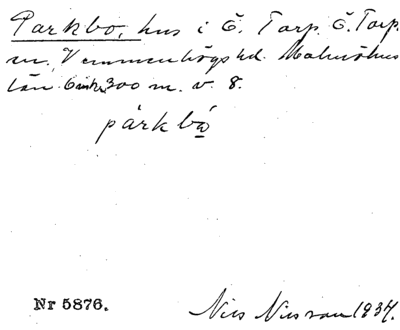 Parkbo, hus i Ö. Tarp. Ö. Tarp.
m. Vemmenhögs hd. Malmöhus
län 300 m. v. 8.
pàrkbó̱
Nr 5876.
Nils Nilsson 1937.